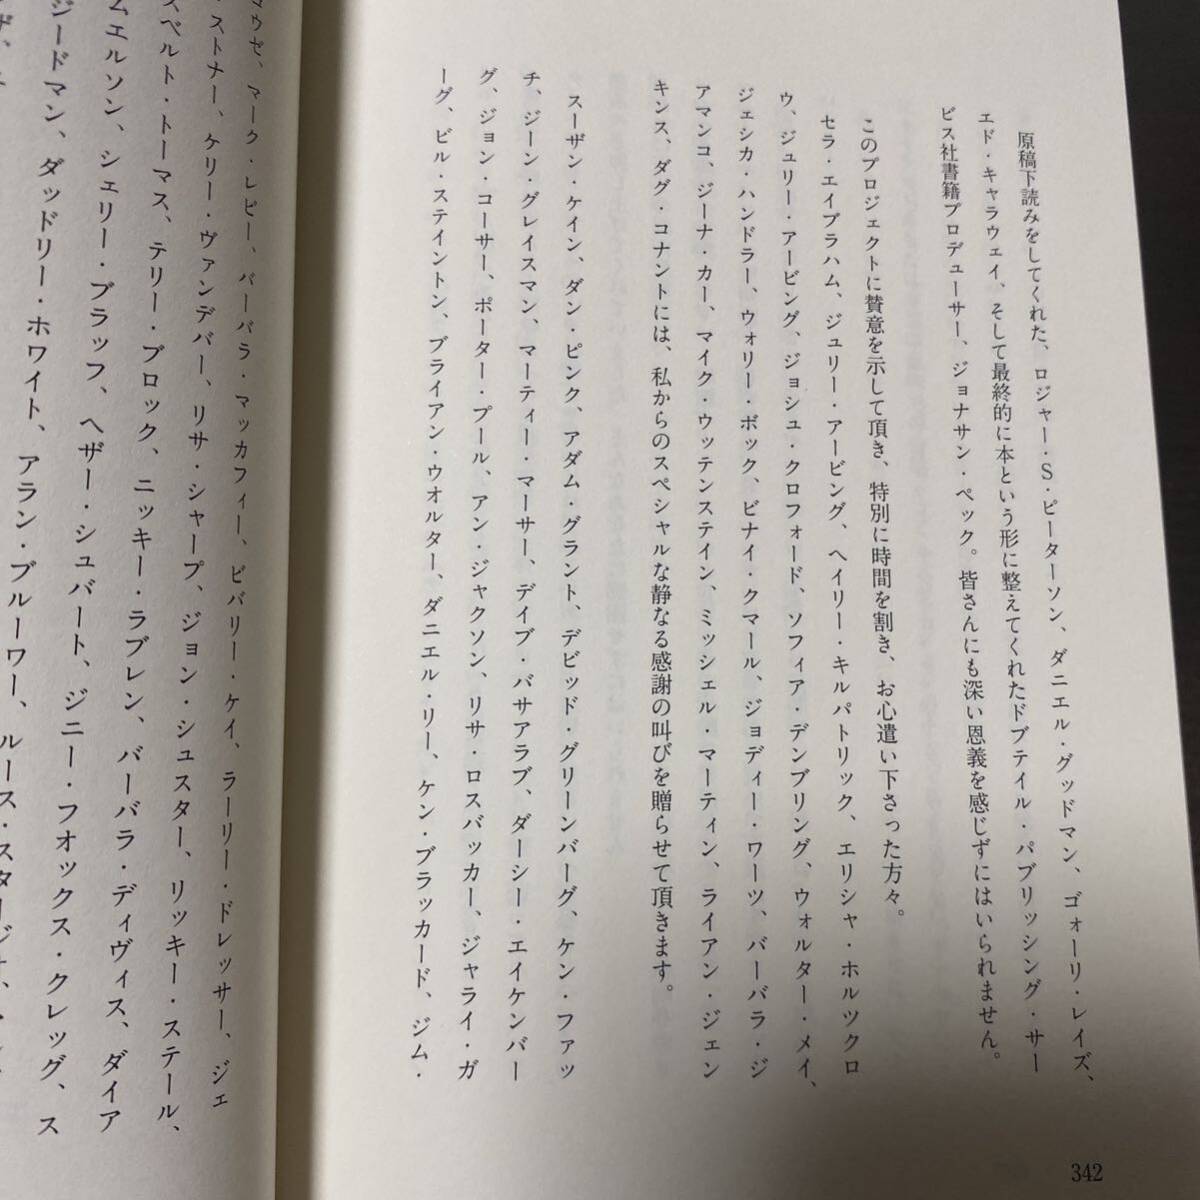 原稿下読みをしてくれた、ロジャー・S・ピーターソン、ダニエル・グッドマン、ゴォーリ・レイズ、
エド・キャラウェイ、そして最終的に本という形に整えてくれたドブテイル・パブリッシング・サー
ビス社書籍プロデューサー、ジョナサン・ペック。皆さんにも深い恩義を感じずにはいられません。
このプロジェクトに賛意を示して頂き、特別に時間を割き、お心遣い下さった方々。
セラ・エイブラハム、ジュリー・アービング、ヘイリー・キルパトリック、エリシャ・ホルツクロ
ウ、ジュリー・アービング、ジョシュ・クロフォード、ソフィア・デンブリング、ウォルター・メイ、
ジェシカ・ハンドラー、ウォリー・ボック、ビナイ・クマール、ジョディー・ワーツ、バーバラ・ジ
アマンコ、ジーナ・カー、マイク・ウッテンステイン、ミッシェル・マーティン、ライアン・ジェン
キンス、ダグ・コナントには、私からのスペシャルな静なる感謝の叫びを贈らせて頂きます。
スーザン・ケイン、ダン・ピンク、アダム・グラント、デビッド・グリーンバーグ、ケン・ファッ
チ、ジーン・グレイスマン、マーティー・マーサー、デイブ・バサアラブ、ダーシー・エイケンバー
グ、ジョン・コーサー、ポーター・プール、アン・ジャクソン、リサ・ロスバッカー、ジャライ・ガ
ーグ、ビル・ステイントン、ブライアン・ウオルター、ダニエル・リー、ケン・ブラッカード、ジム・
342
マウセ、マーク・レビー、バーバラ・マッカフィー、ビバリー・ケイ、ラーリー・ドレッサー、ジェ
・ストナー、ケリー・ヴァンデバー、リサ・シャープ、ジョン・シュスター、リッキー・ステール、
スベルト・トーマス、テリー・ブロック、ニッキー・ラブレン、バーバラ・ディヴィス、ダイア
ムエルソン、シェリー・ブラッフ、ヘザー・シュバート、ジニー・フォックス・クレッグ、ス
ジードマン、ダッドリー・ホワイト、アラン・ブルーワー、ルース・スタージオ、